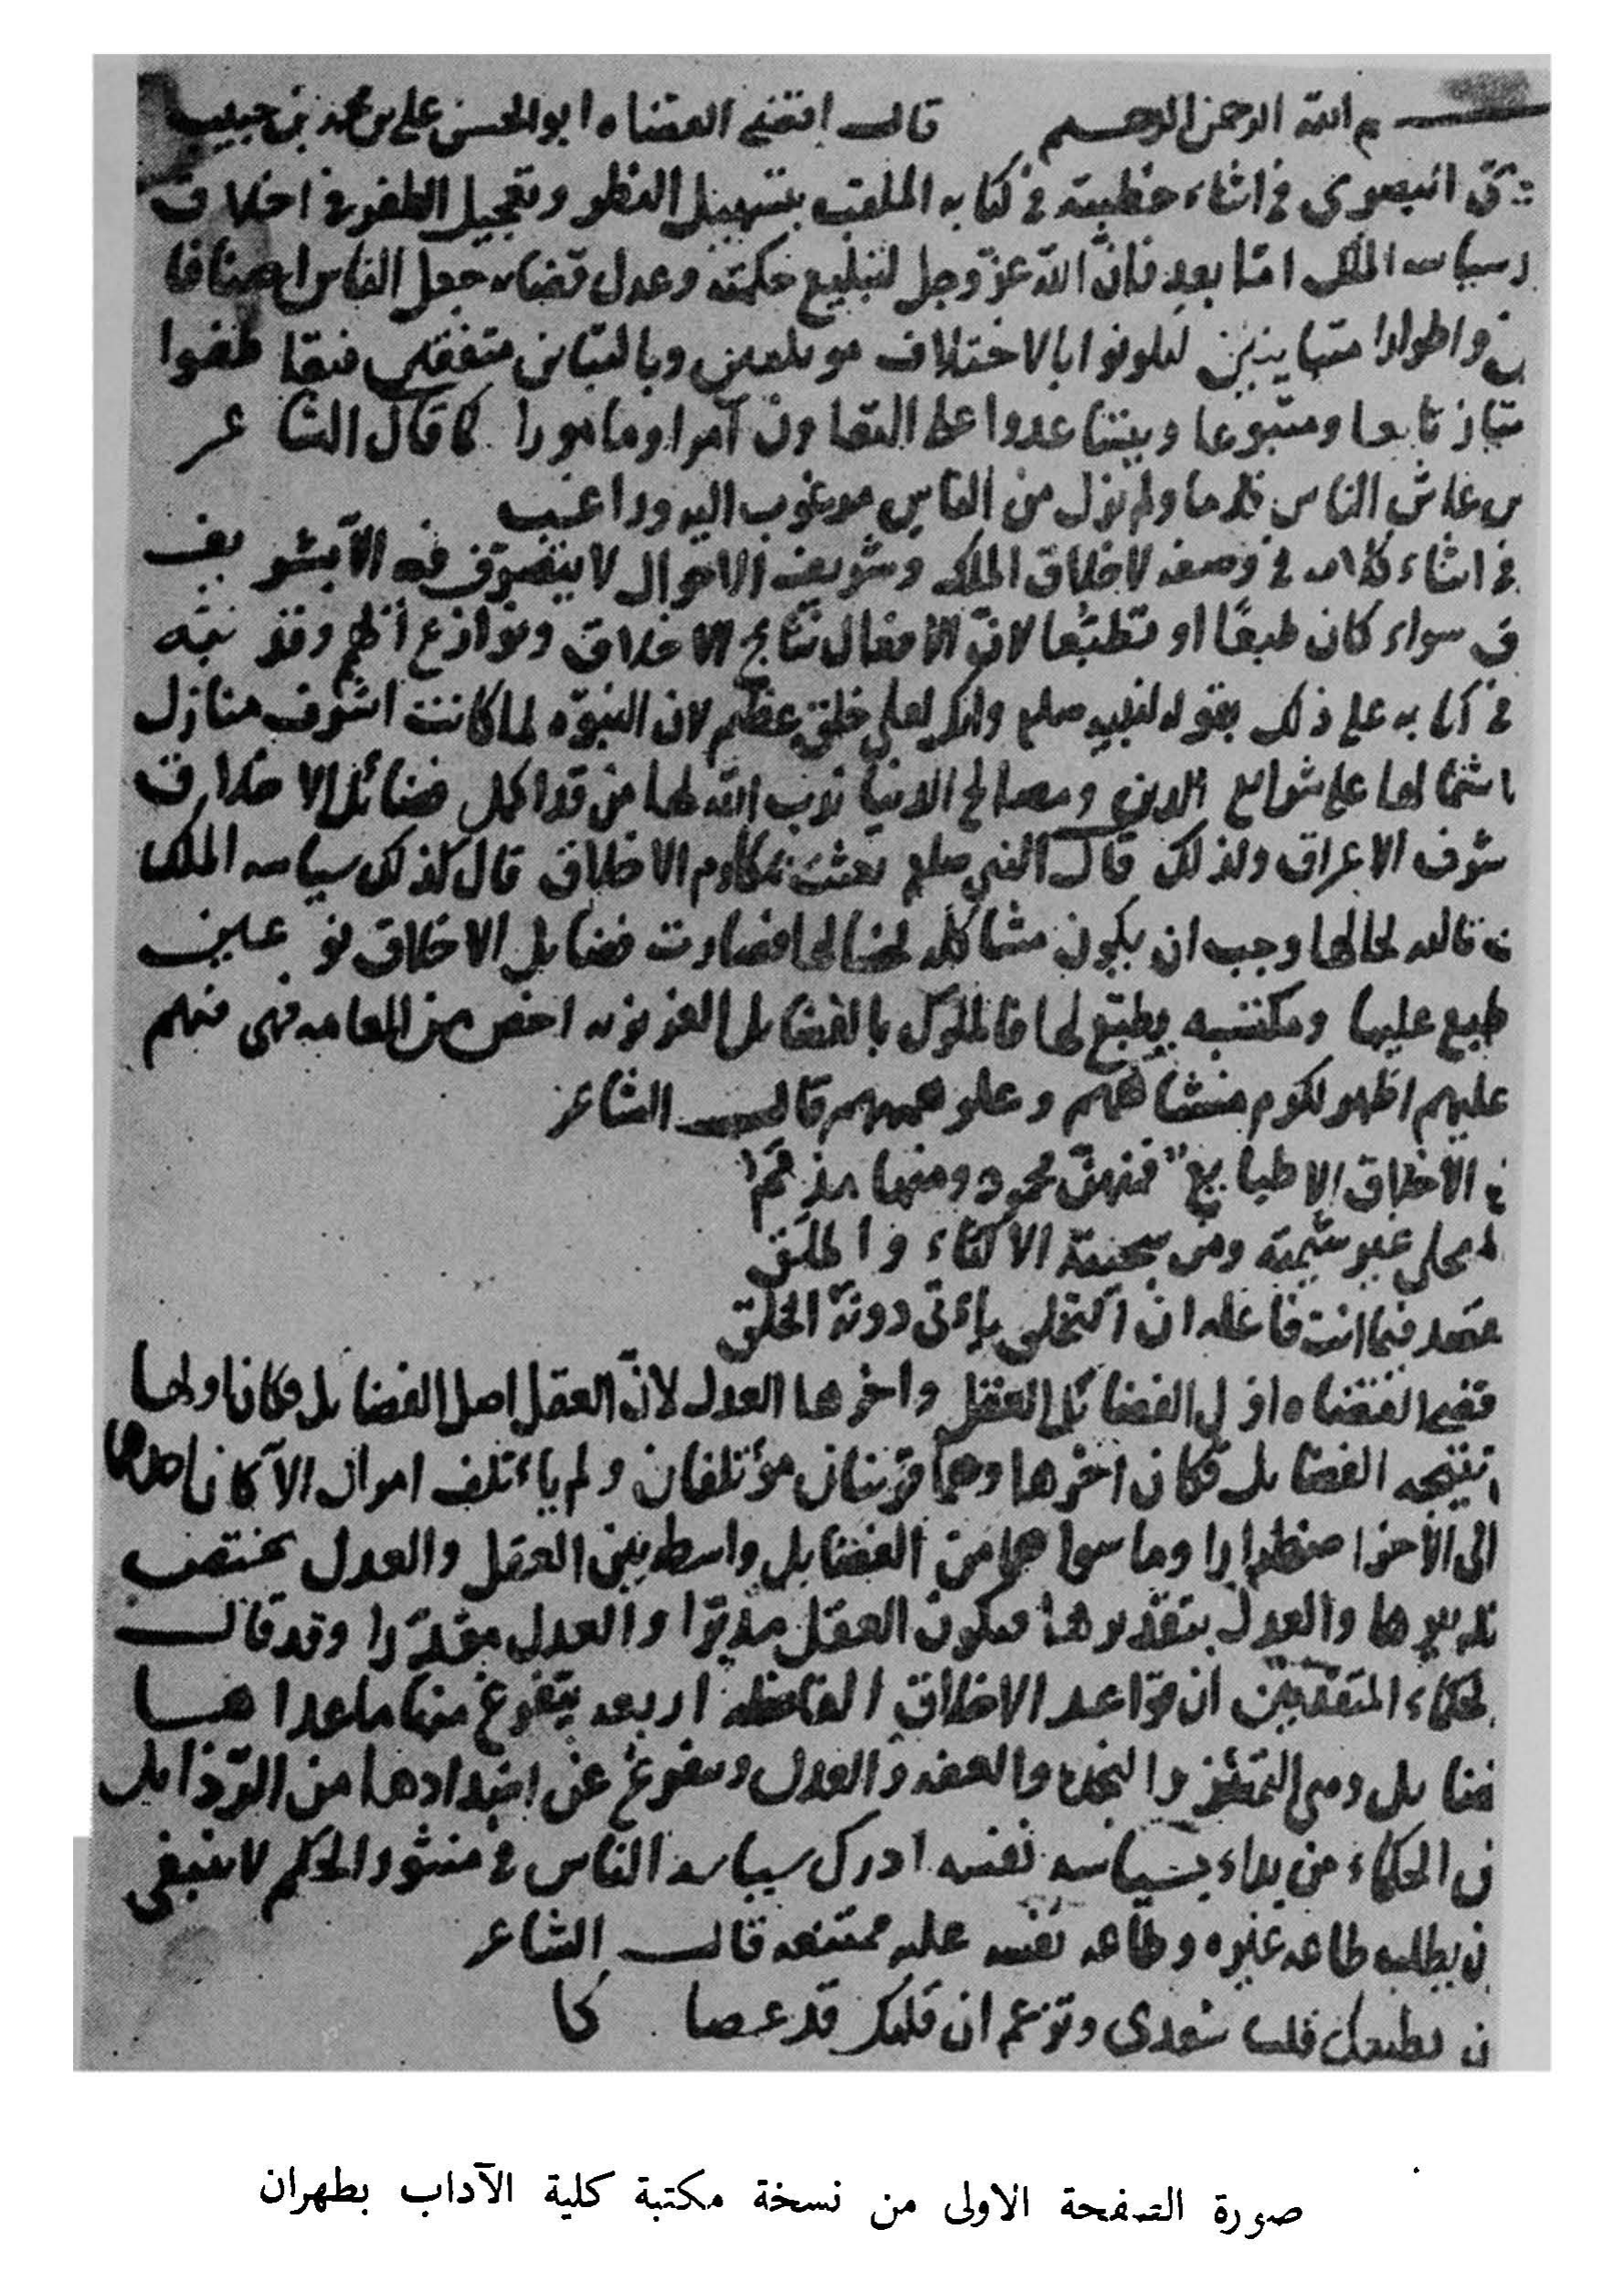 م الله الرحمن الرحيم قال اقضى القضاه ابو الحسن على بن محمد بن حبيب
البصرى فى اثناء خطبته فى كتابه الملقب بتسهيل النظر وتعجيل الظفر فى اخلاق
وسياسه الملك اما بعد فان الله عز وجل لبليغ حكمته وعدل قضائه جعل الناس اصنافا
ن واطوارا متباينين ليكونوا بالاختلاف موتلفين وبالتباين متفقين فيتعاطفوا
تابعا ومتبوعا ويتساعدوا على التعاون آمرا ومامورا كما قال الشاعر
عاش الناس قدما ولم تزل من الناس مرغوب اليه وراغب
فى اثناء كلامه فى وصفه لاخلاق الملك وشريف الاحوال لا يتصرف فيه الا بشريف
ق سواء كان طبعًا او تطبّعا لانّ الافعال نتائج الاخلاق ونوازع الهمم وقد نبّه
فى كتابه على ذلك بقوله لنبيه صلعم وانك لعلى خلق عظيم لان النبوّه لما كانت اشرف منازل
اشتمالها على شرائع الدين ومصالح الدنيا ندب الله لها من قد اكمل فضائل الاخلاق
شرف الاعراق ولذلك قال النبى صلعم بعثت بمكارم الاخلاق قال كذلك سياسه الملك
لحالها وجب ان يكون مشاكله لخصالها فصارت فضايل الاخلاق نوعين
طبع عليها ومكتسبه يطبّع لها فالملوك بالفضايل الغريزيه اخص من العامه فهى فيهم
عليهم اظهر لكرم منشاهم وعلو هممهم قال الشاعر
الاخلاق الا طبايع فمنهنّ محمود ومنها مذمّم
غير شيمته ومن سجيته الاكثار والملق
فيما انت فاعله ان التخلق ياءتى دونه الخلق
قضى القضاه اول الفضائل العقل واخرها العدل لانّ العقل اصل الفضايل فكان اولها
نتيجه الفضايل فكان اخرها وهما قرينان مؤتلفان ولم ياءتلف امران الا كان احدهما
الى الاخر اضطرارا وما سواهما من الفضايل واسطه بين العقل والعدل يختص
بتدبيرها والعدل بتقديرها فيكون العقل مدبّرا والعدل مقدّرا وقد قال
الحكماء المتقدمين ان قواعد الاخلاق الفاضله اربعه يتفرع منها ما عداها
فضايل وهى التمييز والنجده والعفه والعدل ويتفرع عن اضدادها من الرّذايل
الحكماء من بداء بسياسه نفسه ادرك سياسه الناس فى منثور الحكم لا ينبغى
ن يطلب طاعه غيره وطاعه نفسه عليه ممتنعه قال الشاعر
ن يطيعك قلب سعدى وتزعم ان قلبك قد عصا كا
صورة الصفحة الاولى من نسخة مكتبة كلية الآداب بطهران